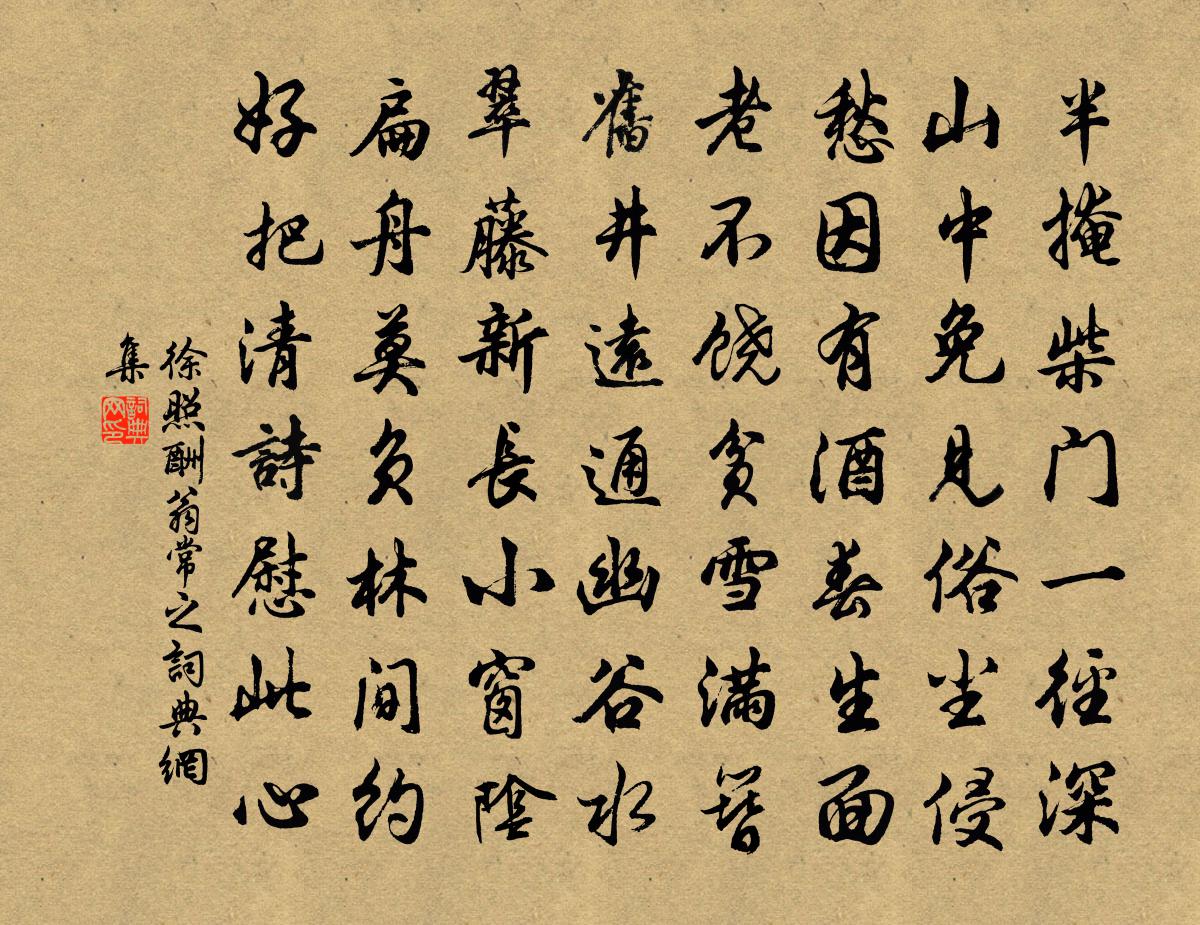 半掩柴门一徑深
山中免見俗尘侵
愁因有酒春生面
老不饶貧雪满簪
舊井遠通幽谷水
翠藤新長小窗陰
扁舟莫负林间約
好把清詩慰此心
徐照酬翁常之詞典網
集
詞典网印